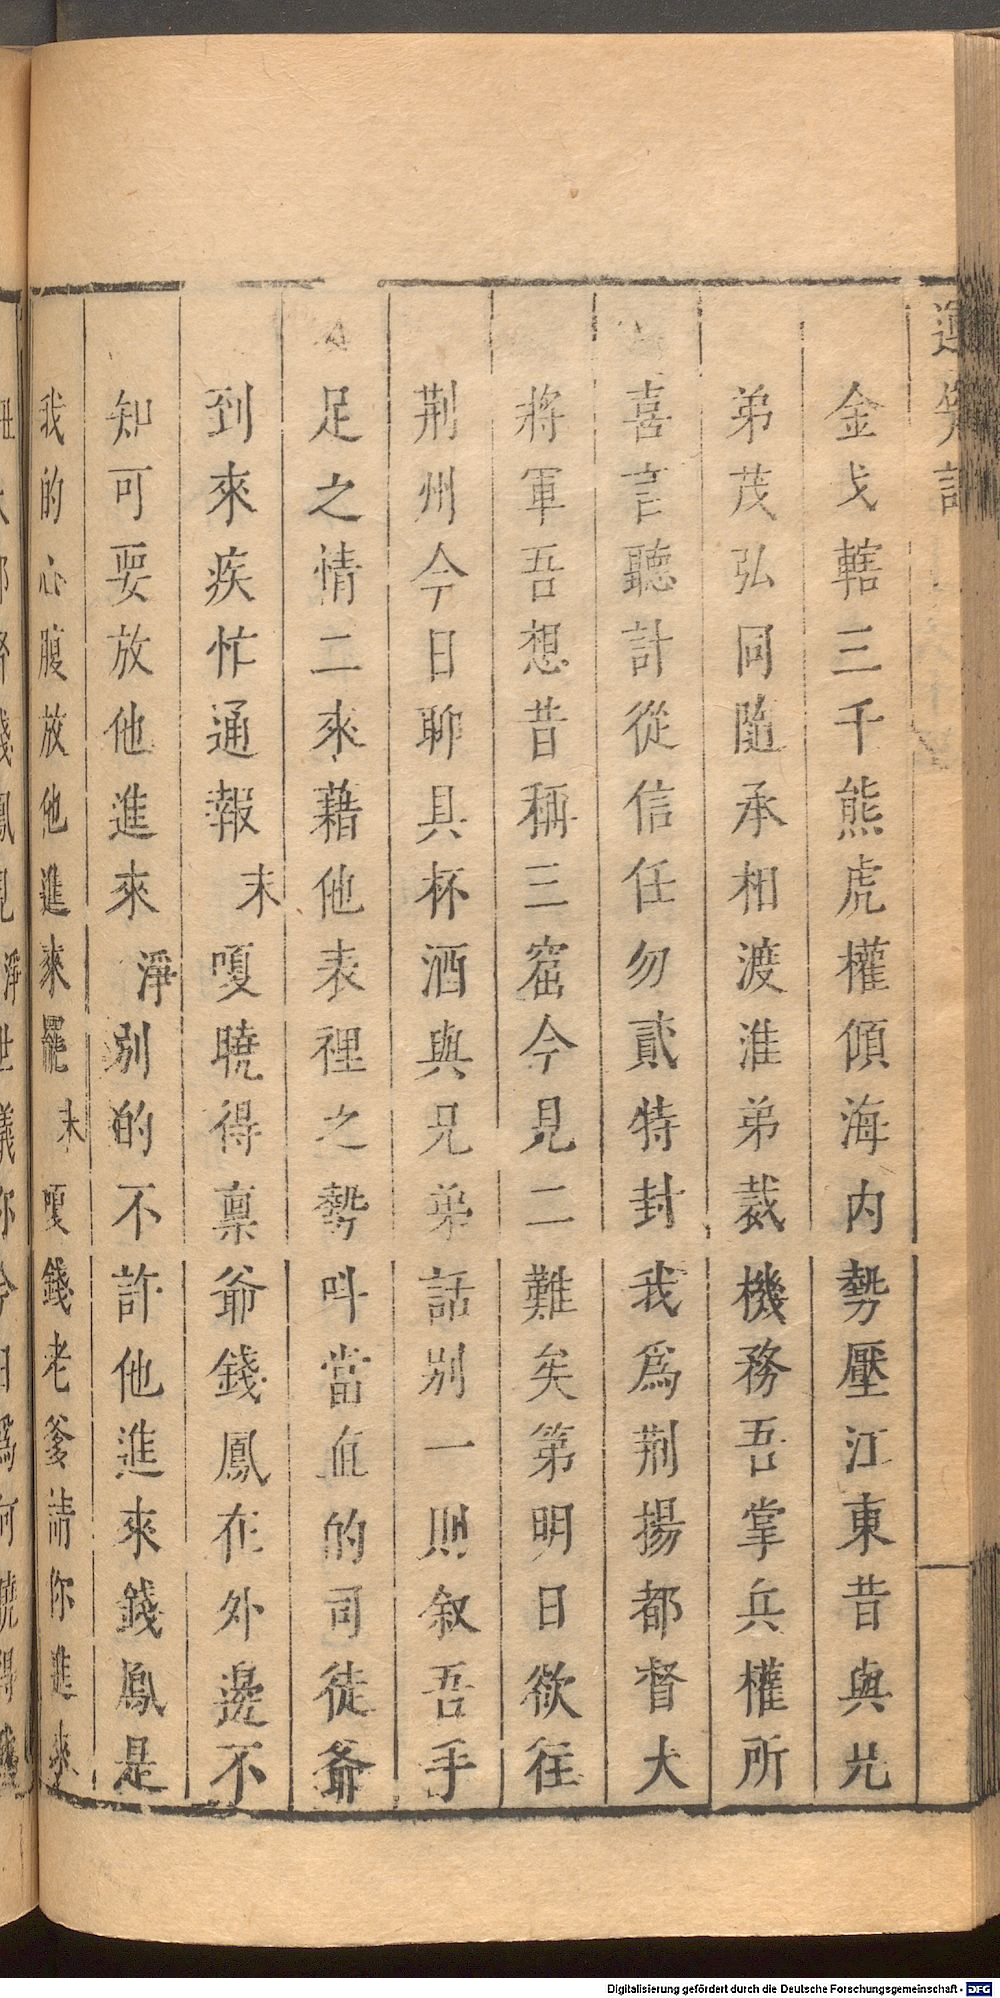 運甓記
金戈轄三千熊虎權傾海内勢壓江東昔與兄
弟茂弘同隨承相渡淮弟裁機務吾掌兵權所
喜言聽計從信任勿貳特封我爲荆揚都督大
將軍吾想昔稱三窟今見二難矣第明日欲往
荆州今日聊具杯酒與兄弟話别一則叙吾手
足之情二來藉他表裡之勢呌當直的司徒爺
到來疾忙通報末嗄曉得稟爺錢鳳在外邊不
知可要放他進來淨别的不許他進來錢鳳是
我的心腹放他進來罷末嗄錢老爹請你進來
Digitalisierung gefördert durch die Deutsche Forschungsgemeinschaft - DFG